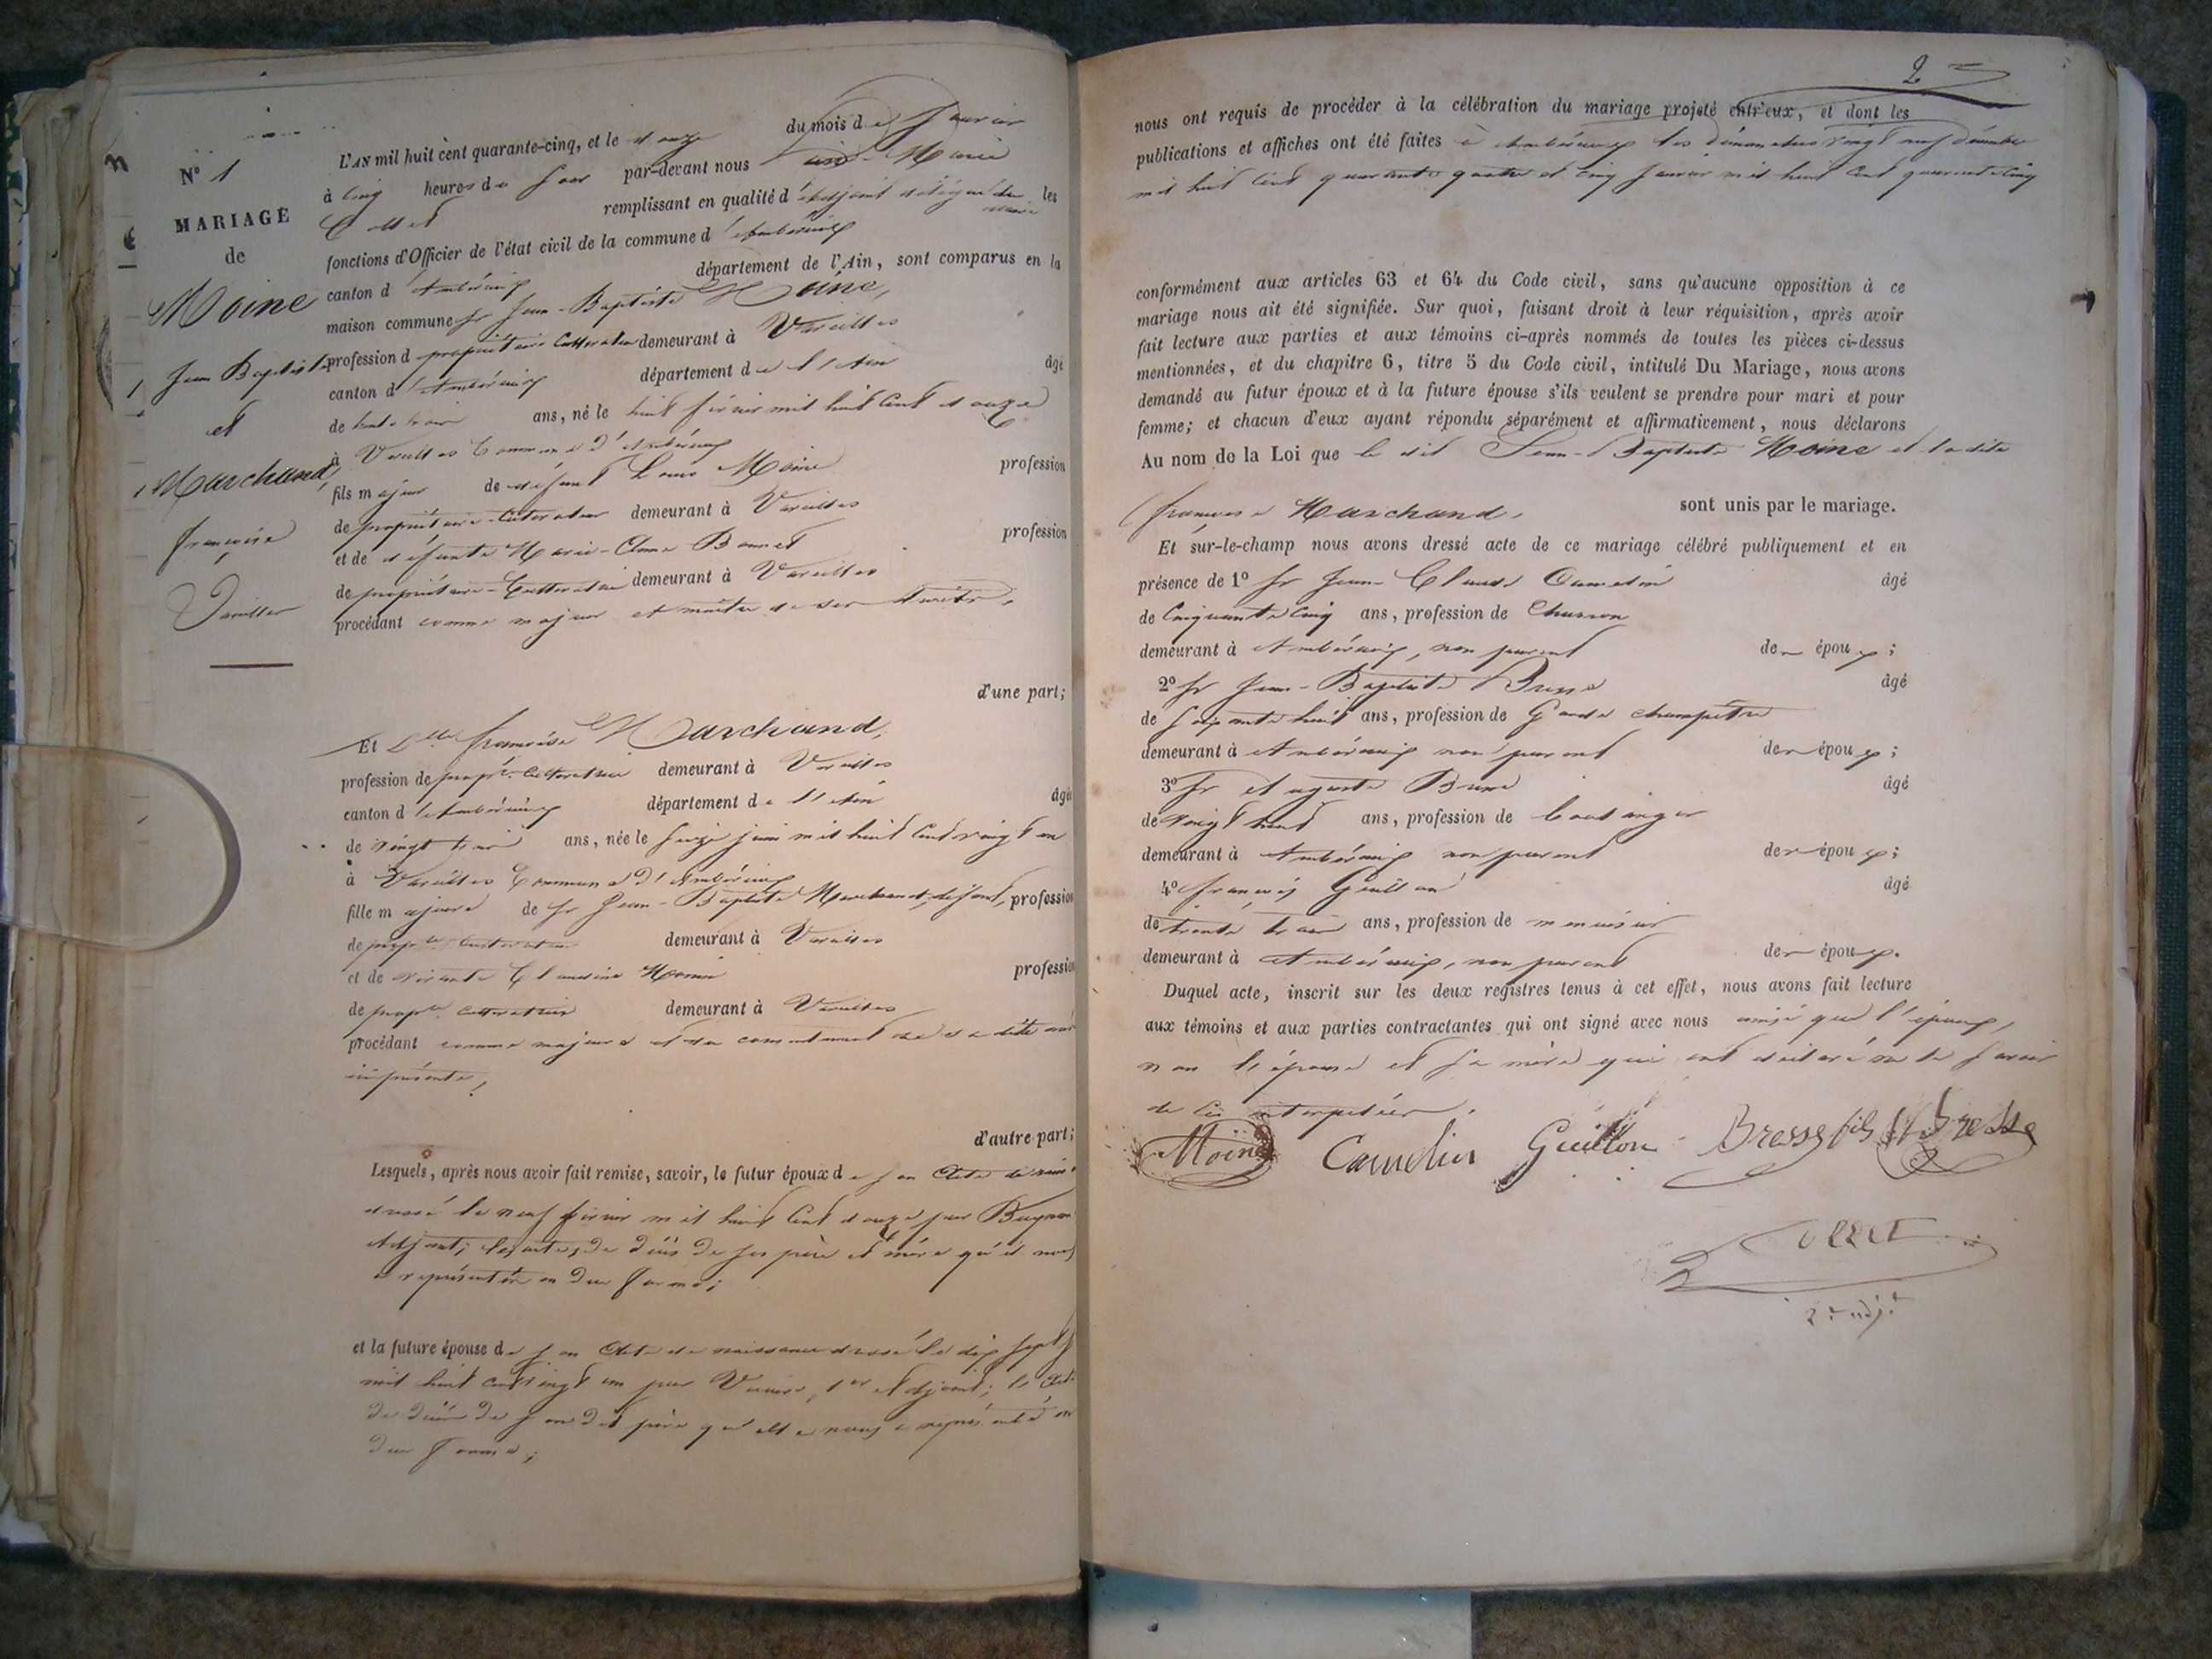 N° 1
MARIAGE
de
Moine
Jean Baptiste
et
Marchand,
françoise
Varilles
L'AN mil huit cent quarante-cinq, et le douze du mois de Janvier
à cinq heures du soir par-devant nous Marie
Collet remplissant en qualité d'adjoint délégué du maire les
fonctions d'Officier de l'état civil de la commune d'Ambérieux
canton d'Ambérieux département de l'Ain, sont comparus en la
maison commune Sr Jean-Baptiste Moine,
profession de propriétaire cultivateur demeurant à Vareilles
canton d'Ambérieux département de l'Ain âgé
de trente trois ans, né le huit février mil huit cent douze
à Vareilles Commune d'Ambérieux
fils majeur de défunt Louis Moine profession
de propriétaire-cultivateur demeurant à Vareilles
et de défunte Marie-Anne Bonnet profession
de propriétaire-Cultivatrice demeurant à Vareilles
procédant comme majeur et maître de ses droits,
d'une part;
Et Dlle françoise Marchand,
profession de propre. Cultivatrice demeurant à Vareilles
canton d'Ambérieux département de l'Ain âgée
de vingt trois ans, née le seize juin mil huit cent vingt un
à Vareilles Commune d'Ambérieux
fille majeure de Sr Jean-Baptiste Marchand, défunt, profession
de propre. cultivateur demeurant à Vareilles
et de vivante Claudine profession
de propre. cultivatrice demeurant à Vareilles
procédant comme majeure et du consentement de sa dite mère
ici présente,
d'autre part;
Lesquels, après nous avoir fait remise, savoir, le futur époux de son Acte de naiss.
dressé le neuf février mil huit cent douze par
Adjoint; les actes de décès de ses père et mère qu'il nous
a représentés en due forme;
et la future épouse de son Acte de naissance dressé le dix sept
mil huit cent vingt un par 1er Adjoint; l'acte
de décès de son dit père qu'elle nous a représenté en
due forme;
2
nous ont requis de procéder à la célébration du mariage projeté entr'eux, et dont les
publications et affiches ont été faites à Ambérieux les dimanches vingt neuf décembre
mil huit cent quarante quatre et cinq janvier mil huit cent quarante cinq
conformément aux articles 63 et 64 du Code civil, sans qu'aucune opposition à ce
mariage nous ait été signifiée. Sur quoi, faisant droit à leur réquisition, après avoir
fait lecture aux parties et aux témoins ci-après nommés de toutes les pièces ci-dessus
mentionnées, et du chapitre 6, titre 5 du Code civil, intitulé Du Mariage, nous avons
demandé au futur époux et à la future épouse s'ils veulent se prendre pour mari et pour
femme; et chacun d'eux ayant répondu séparément et affirmativement, nous déclarons
Au nom de la Loi que le dit Jean-Baptiste Moine et la dite
françoise Marchand, sont unis par le mariage.
Et sur-le-champ nous avons dressé acte de ce mariage célébré publiquement et en
présence de 1° Sr Jean-Claude Camelin âgé
de Cinquante cinq ans, profession de Charron
demeurant à Ambérieux, non parent des époux;
2° Sr Jean-Baptiste Bresse âgé
de soixante huit ans, profession de Garde champêtre
demeurant à Ambérieux non parent des époux;
3° Sr Auguste Bresse âgé
de vingt huit ans, profession de boulanger
demeurant à Ambérieux non parent des époux;
4° françois Guillon âgé
de trente trois ans, profession de menuisier
demeurant à Ambérieux, non parent des époux.
Duquel acte, inscrit sur les deux registres tenus à cet effet, nous avons fait lecture
aux témoins et aux parties contractantes qui ont signé avec nous ainsi que l'époux,
non l'épouse et sa mère qui ont déclaré ne le savoir
de ce interpellées.
Moine Camelin Guillon Bresse fils Bresse
COLLET
2e adjt